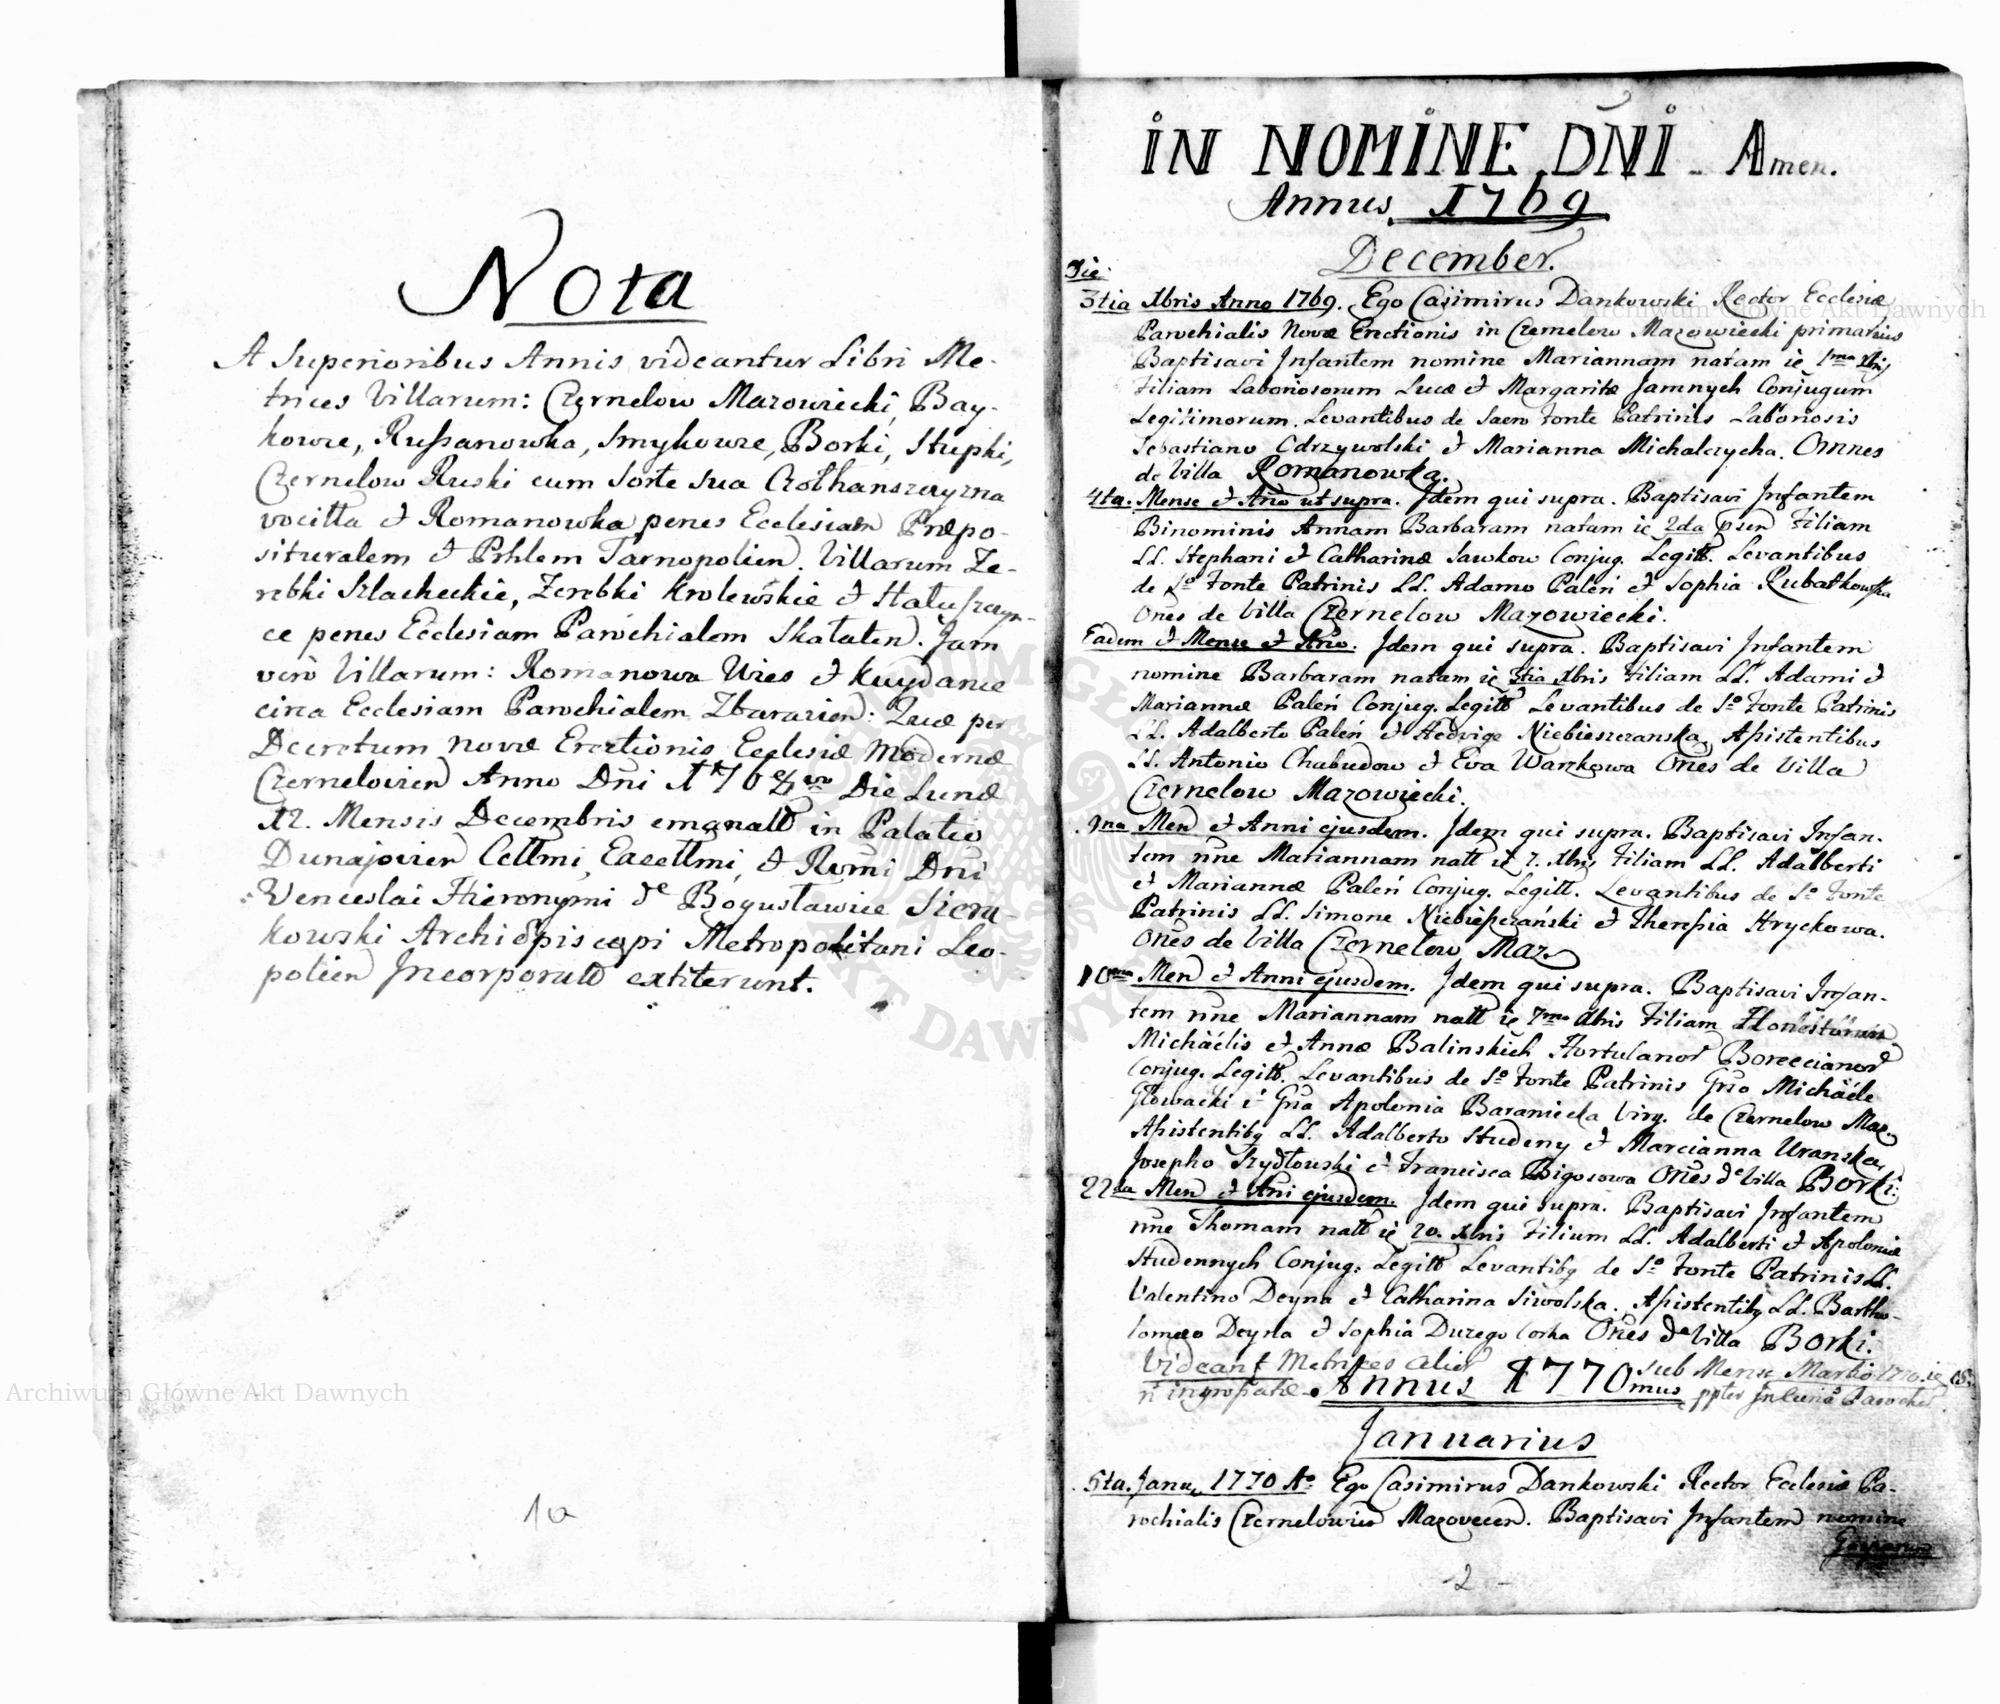 Nota
A Superioribus Annis videantur Libri Me-
trices Villarum: Czernelow Mazowiecki, Bay-
kowce, Russanowka, Smykowce, Borki, Stupki,
Czernelow Ruski cum Sorte sua Czolhanszczyzna
vocitta et Romanowka penes Ecclesiam Præpo-
situralem et Prhlem Tarnopolien. Villarum Ze-
rebki Szlacheckie, Zerebki Krolewskie et Haluszczyn-
ce penes Ecclesiam Parochialem Skalaten. Jam
verò Villarum: Romanowa Wies et Kuydance
circa Ecclesiam Parochialem Zbarazien: Quæ per
Decretum novæ Erectionis Ecclesiæ Modernæ
Czernelovien Anno Dni Die Lunæ
12. Mensis Decembris emanatt in Palatio
Dunajovien Cellmi, Excellmi, et Rvmi Dni
Venceslai Hieronymi de Boguslawice Siera-
kowski Archiepiscopi Metropolitani Leo-
polien Incorporatt extiterunt.
1a
IN NOMINE DNI Amen.
Annus 1769
December.
Die
3tia Xbris Anno 1769. Ego Casimirus Dankowski Rector Ecclesiæ
Parochialis Novæ Erectionis in Czernelow Mazowiecki primarius
Baptisavi Infantem nomine Mariannam natam ie 1ma Xbris
Filiam Laboriosorum Lucæ et Margaritæ Jamnych Conjugum
Legitimorum. Levantibus de Sacro Fonte Patrinis Laboriosis
Sebastiano Odrzywolski et Marianna Michalczycha. Omnes
de Villa Romanowka.
4ta. Mense et Ano ut supra. Idem qui supra. Baptisavi Infantem
Binominis Annam Barbaram natam ie 2da psen Filiam
LL. Stephani et Catharinæ Sawkow Conjug. Legitt. Levantibus
de So Fonte Patrinis LL. Adamo Paleń et Sophia Rubatkowska
Ones de Villa Czernelow Mazowiecki.
Eadem et Mense et Ano. Idem qui supra. Baptisavi Infantem
nomine Barbaram natam ie 3tia Xbris Filiam LL. Adami et
Mariannæ Paleń Conjug. Legitt Levantibus de So Fonte Patrinis
LL. Adalberto Paleń et Hedvige Niebieszczanska, Assistentibus
LL. Antonio Chabudow et Eva Warzkowa Ones de Villa
Czernelow Mazowiecki.
9na Men et Anni ejusdem. Idem qui supra. Baptisavi Infan-
tem nne Mariannam natt ie 7. Xbris Filiam LL. Adalberti
et Mariannæ Paleń Conjug. Legitt. Levantibus de So Fonte
Patrinis LL. Simone Niebieszczański et Theressia Hryckowa.
Ones de Villa Czernelow Maz.
10ma Men et Anni ejusdem. Idem qui supra. Baptisavi Infan-
tem nne Mariannam natt ie 7ma Xbris Filiam Honestorum
Michäelis et Annæ Balinskich Hortulanor Boreccianor
Conjug. Legitt. Levantibus de So Fonte Patrinis Gnso Michäele
Głowacki et Gnsa Apolonia Baraniecka Virg. de Czernelow Maz.
Assistentibq LL. Adalberto Studeny et Marcianna Uranska,
Josepho Szydłowski et Francisca Bigosowa Ones de Villa Borki.
22da Men et Ani ejusdem. Idem qui supra. Baptisavi Infantem
nne Thomam natt ie 20. Xbris Filium LL. Adalberti et Apoloniæ
Studennych Conjug. Legitt Levantibq de So Fonte Patrinis LL.
Valentino Deyna et Catharina Siwolska. Assistentibq LL. Bartho-
lomæo Deyna et Sophia Duzego Corka Ones de Villa Borki.
Videant Metrices sub Mense Martio 1770.
Annus 1770mus
Januarius
5ta. Janu. 1770 Ao Ego Casimirus Dankowski Rector Ecclesiæ Pa-
rochialis Czernelovien Mazovecen. Baptisavi Infantem nomine
2
Archiwum Główne Akt Dawnych
Archiwum Główne Akt Dawnych